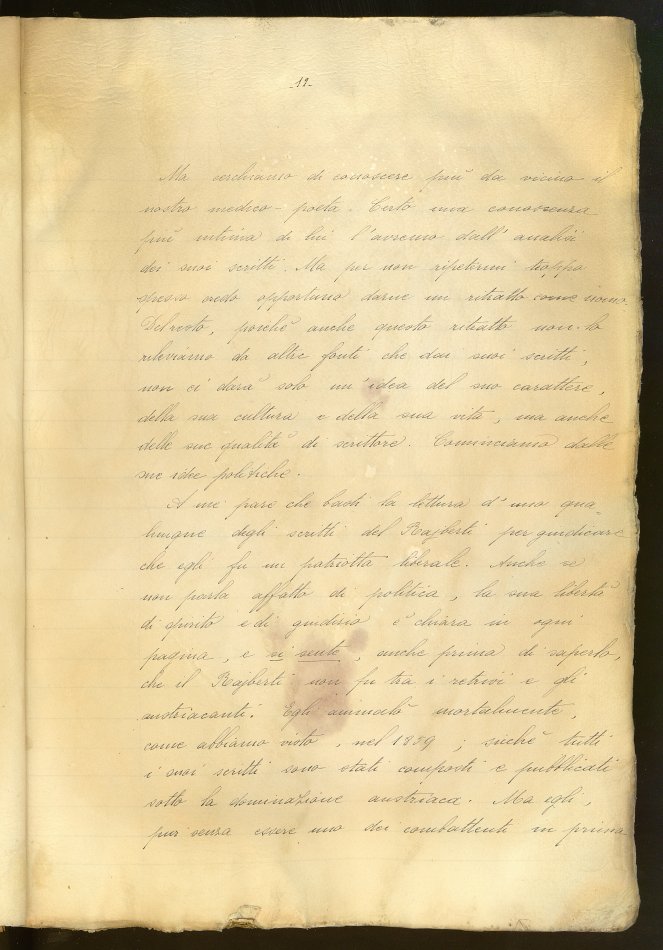 -12-
Ma cerchiamo di conoscere più da vicino il
nostro medico-poeta. Certo una conoscenza
più intima di lui l'avremo dall'analisi
dei suoi scritti. Ma per non ripetermi troppo
spesso credo opportuno darne un ritratto come uomo.
Del resto, poiché anche questo ritratto non lo
rileviamo da altre fonti che dai suoi scritti,
non ci darà solo un'idea del suo carattere,
della sua cultura e della sua vita, ma anche
delle sue qualità di scrittore. Cominciamo dalle
sue idee politiche.
A me pare che basti la lettura d'uno qua-
lunque degli scritti del Rajberti per giudicare
che egli fu un patriotta liberale. Anche se
non parla affatto di politica, la sua libertà
di spirito e di giudizio è chiara in ogni
pagina, e si sente, anche prima di saperlo,
che il Rajberti non fu tra i retrivi e gli
austriacanti. Egli ammalò mortalmente,
come abbiamo visto, nel 1859; sicché tutti
i suoi scritti sono stati composti e pubblicati
sotto la dominazione austriaca. Ma egli,
pur senza essere uno dei combattenti in prima